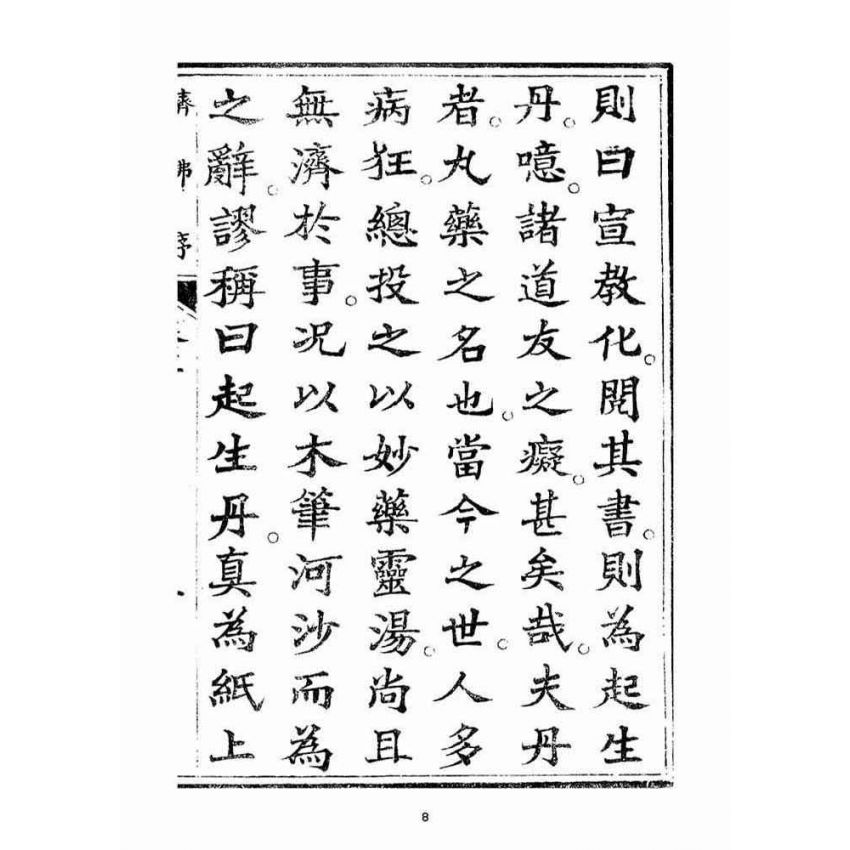 則曰宣教化。閱其書。則為起生
丹。噫。諸道友之癡。甚矣哉。夫丹
者。丸藥之名也。當今之世。人多
病狂。總投之以妙藥靈湯。尚且
無濟於事。况以木筆河沙而為
之辭。謬稱曰起生丹。真為紙上
濟佛序
8